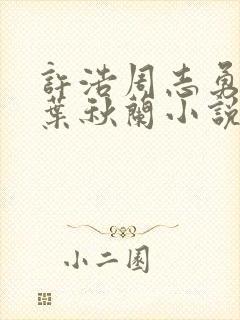 許浩周志勇
葉秋蘭小說
小二園